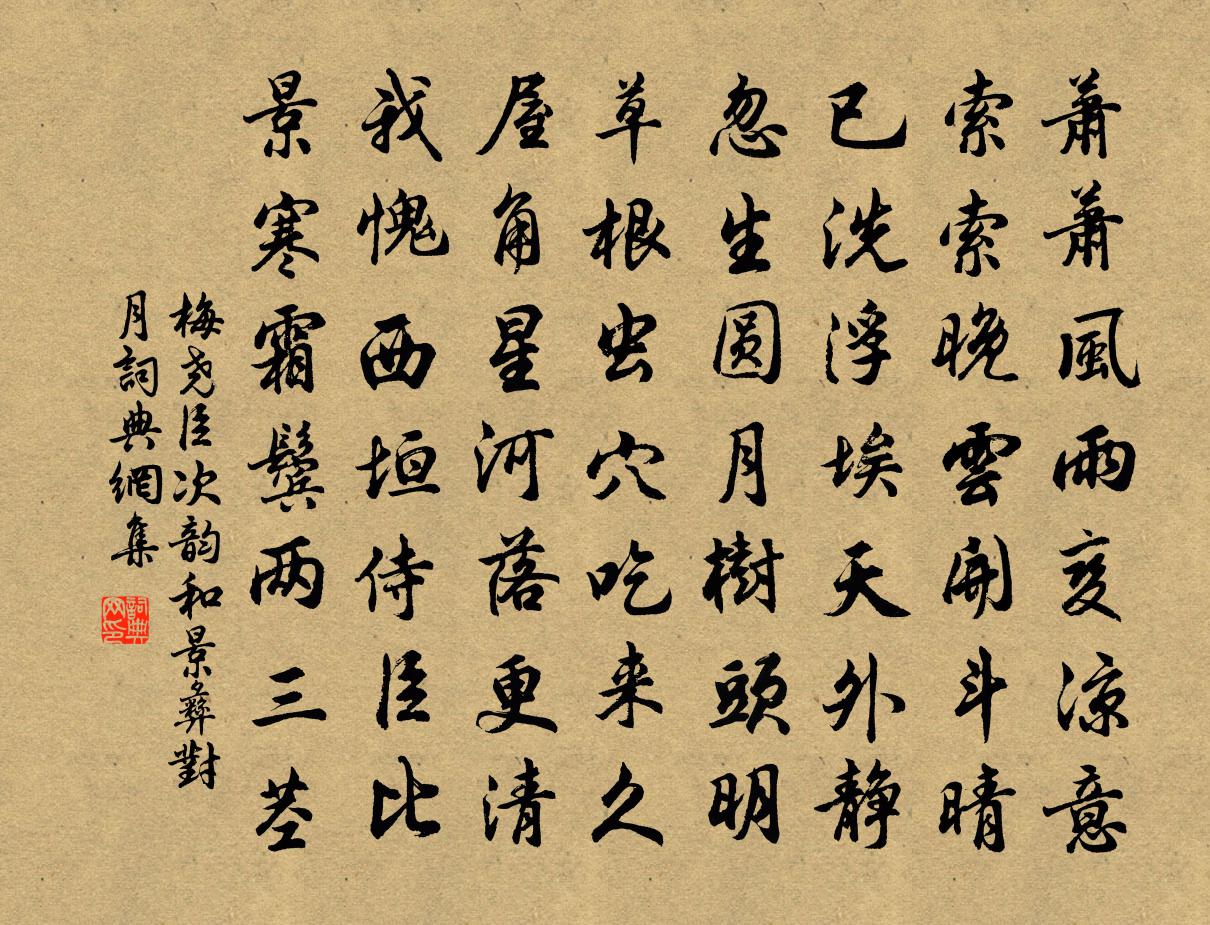 蕭蕭風雨变涼意
索索晚雲開斗晴
已洗浮埃天外静
忽生圆月樹頭明
草根虫穴吃来久
屋角星河落更清
我愧西垣侍臣比
景寒霜鬓两三茎
梅尧臣次韵和景彝對
月詞典網集
詞典网印